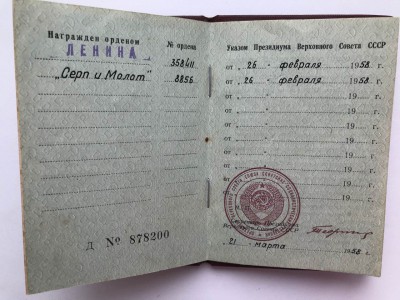 Награжден орденом
ЛЕНИНА
№ ордена
358411
„Серп и Молот"
8856
Д № 878200
Указом Президиума Верховного Совета СССР
от „ 26 " февраля 1958 г.
от „ 26 " февраля 1958 г.
от „ " 19 г.
от „ " 19 г.
от „ " 19 г.
от „ " 19 г.
от „ " 19 г.
от „ " 19 г.
от 19 г.
„ 21 " марта 1958 г.